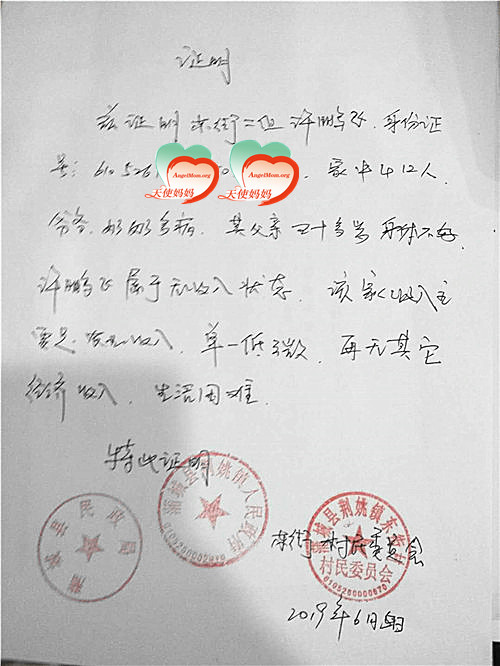 证明
兹证明东街二组许鹏飞,身份证
号:610526 AngelMom.org 天使妈妈 0 AngelMom.org 天使妈妈,家中4口人,
爷爷、奶奶多病,其父亲五十多岁身体不好,
许鹏飞属于无收入状态,该家收入主
要是收入,单一低微,再无其它
经济收入,生活困难。
特此证明
蒲城县民政局
蒲城县荆姚镇人民政府
蒲城县荆姚镇东街村
村民委员会
6105260000670
东街村村民委员会
2019年6月